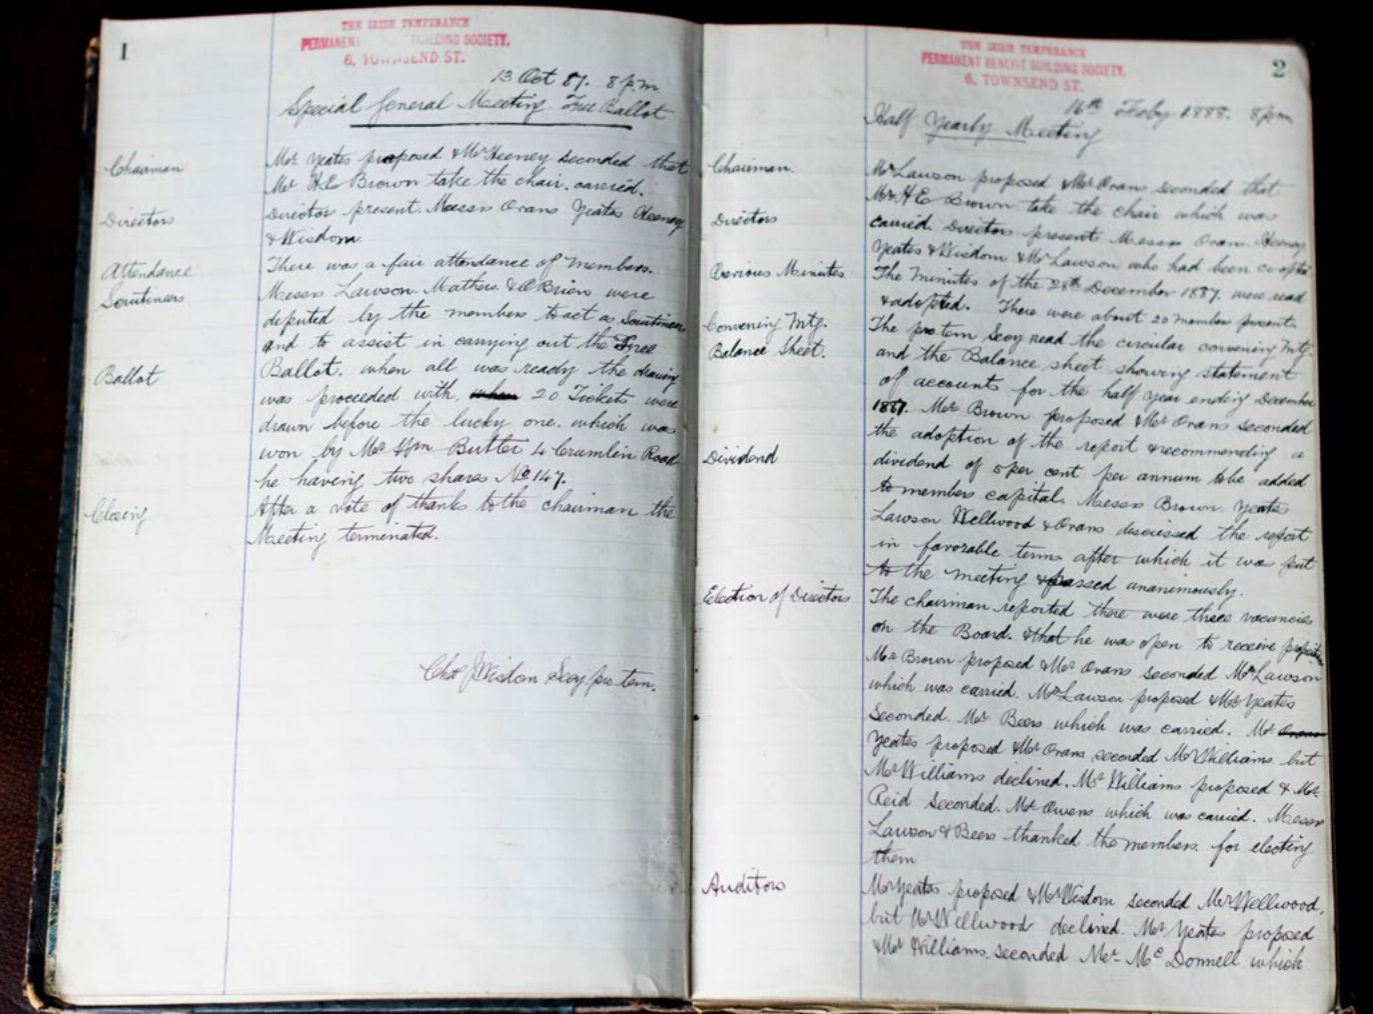 1
THE IRISH TEMPERANCE
PERMANENT BUILDING SOCIETY.
6, TOWNSEND ST.
13 Oct 87. 8 p.m.
Special General Meeting. Free Ballot
Chairman
Mr Yeates proposed & Mr Heeney seconded that
Mr H.E. Brown take the chair. carried.
Directors
Director present. Messrs Orans Yeates Heeney
& Wisdom.
Attendance
There was a fair attendance of Members.
Scrutineers
Messrs Lawson. Mathers & O'Briens were
deputed by the members to act as Scrutineers
and to assist in carrying out the Free
Ballot
Ballot. when all was ready the drawing
was proceeded with. when 20 Tickets were
drawn before the lucky one. which was
won by Mr Wm Butler 4 Crumlin Road
he having two shares No 147.
Closing
After a vote of thanks to the chairman the
Meeting terminated.
Chas J Wisdom Secy pro tem.
2
THE IRISH TEMPERANCE
PERMANENT BENEFIT BUILDING SOCIETY.
6, TOWNSEND ST.
16th Feby 1888. 8 pm
Half Yearly Meeting
Chairman.
Mr Lawson proposed & Mr Orans seconded that
Mr H E Brown take the chair which was
Directors
carried. Directors present Messrs Orans. Heeney
Yeates & Wisdom & Mr Lawson who had been co-opted
Previous Minutes
The Minutes of the 28th December 1887. were read
& adopted. There were about 20 members present.
Convening Mtg.
The pro tem Secy read the circular convening Mtg.
Balance Sheet.
and the Balance sheet showing statement
of accounts for the half year ending December
1887. Mr Brown proposed Mr Orans seconded
the adoption of the report & recommending a
Dividend
dividend of 5 per cent per annum to be added
to members capital. Messrs Brown. Yeates
Lawson Wellwood & Orans discussed the report
in favorable terms after which it was put
to the meeting & passed unanimously.
Election of Directors
The chairman reported there were three vacancies
on the Board. & that he was open to receive
Mr Brown proposed & Mr Orans seconded Mr Lawson
which was carried. Mr Lawson proposed & Mr Yeates
Seconded. Mr Beers which was carried. Mr Orans
Yeates proposed & Mr Orans seconded Mr Williams but
Mr Williams declined. Mr Williams proposed & Mr
Reid seconded. Mr Owens which was carried. Messrs
Lawson & Beers thanked the members for electing
them
Auditors
Mr Yeates proposed & Mr Wisdom seconded Mr Wellwood,
but Mr Wellwood declined. Mr Yeates proposed
& Mr Williams seconded Mr. McDonnell which